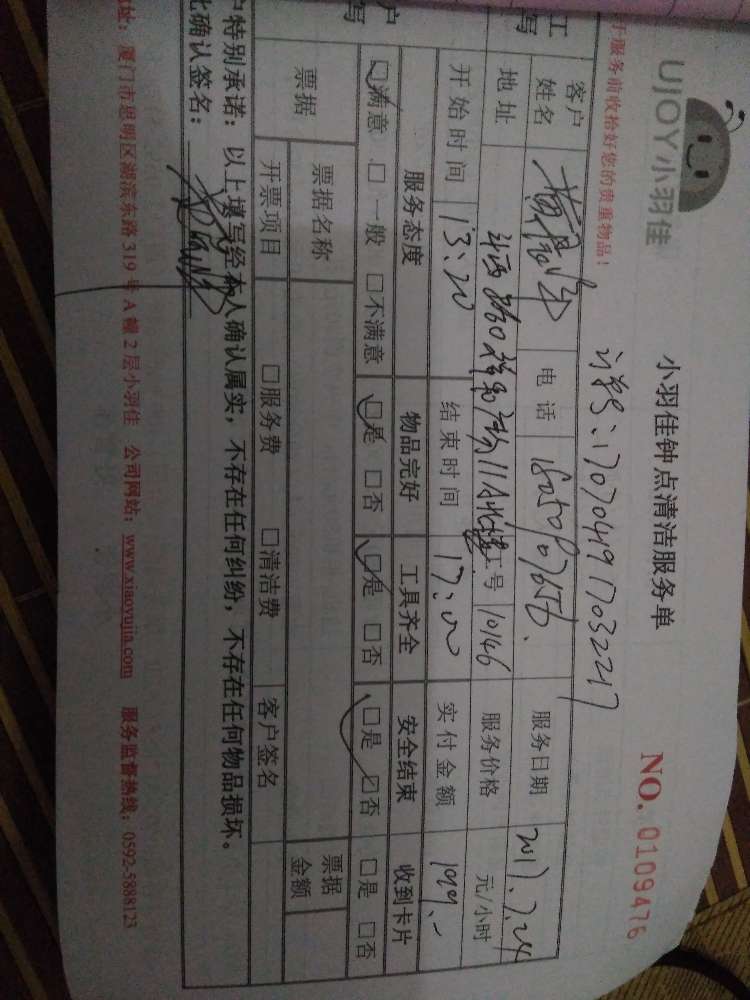 UJOY小羽佳
小羽佳钟点清洁服务单
NO. 0109476
服务前收拾好您的贵重物品！
17070491703227
客户姓名 电话 服务日期 2017.7.24
地址 工号 10146 服务价格 元/小时
开始时间 13:20 结束时间 17:00 实付金额 199.-
服务态度 物品完好 工具齐全 安全结束 收到卡片
☑满意 □一般 □不满意 ☑是 □否 ☑是 □否 □是 □否 □是 □否
票据 票据名称 票据金额
开票项目 □服务费 □清洁费 客户签名
户特别承诺：以上填写经本人确认属实，不存在任何纠纷，不存在任何物品损坏。
此确认签名：
地址：厦门市思明区湖滨东路 319 号 A 幢 2 层小羽佳 公司网站：www.xiaoyujia.com 服务监督热线：0592-5888123